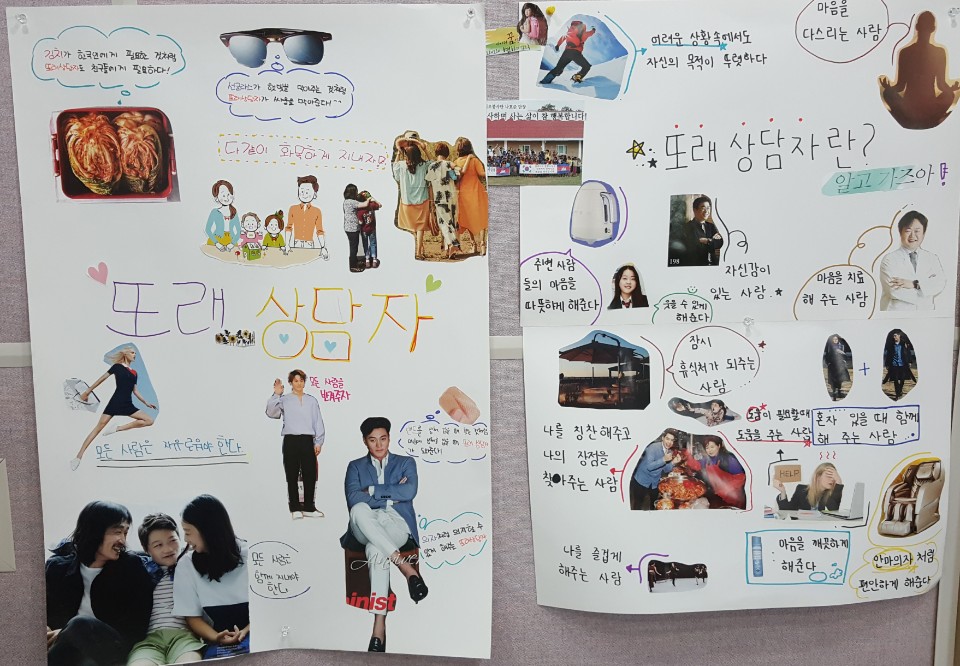 김치가 한국인에게 필요한 것처럼
또래상담자도 친구들에게 필요하다!
선글라스가 햇빛을 막아주는 것처럼
또래상담자가 싸움을 막아준다!
다같이 화목하게 지내자요
또래 상담자
모든 사람을
반겨주자
모든 사람은 자유로워야 한다
의자처럼 의지할 수
있게 해주는 또래상담자
모든 사람은
함께 지내야
한다
inist
꿈
여러운 상황 속에서도
자신의 목적이 뚜렷하다
마음을
다스리는 사람
사하며 사는 삶이 참 행복합니다!
또래 상담자란?
알고 가즈아!
주변 사람
들의 마음을
따뜻하게 해준다
198
자신감이
있는 사람.
웃을 수 있게
해준다
마음을 치료
해 주는 사람
잠시
휴식처가 되주는
사람
+
도움이 필요할때
도움을 주는 사람
혼자 있을 때 함께
해 주는 사람
나를 칭찬해주고
나의 장점을
찾아주는 사람
HELP
나를 즐겁게
해주는 사람
마음을 깨끗하게
해준다
안마의자 처럼
편안하게 해준다